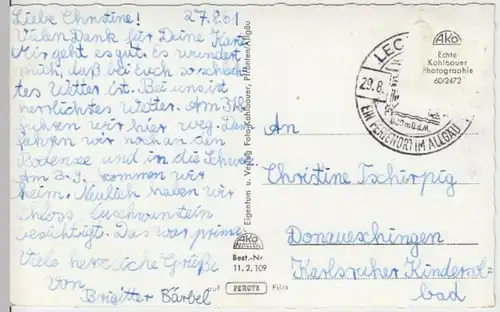 Liebe Christine! 27.8.61
Vielen Dank für Deine Karte
Mir geht es gut. Es wundert
mich, daß bei Euch so schlech-
tes Wetter ist. Bei uns ist
herrlichstes Wetter. Am 31.8
fahren wir hier weg. Dan
fahren wir noch an den
Bodensee und in die Schweiz
Am 3.9. kommen wir
heim. Neulich haben wir
Schloss
besichtigt. Das war prima
Viele herzliche Grüße
von
Brigitte Bärbel
Eigentum u. Verlag Foto-Kohlbauer, Pfronten/Allgäu
AKO
Best.-Nr.
11. 2. 109
auf PERUTZ Film
AKO
Echte
Kohlbauer
Photographie
60/2472
LEC
29.8.
EIN FERIENORT IM ALLGÄU
An
Christine Tschirpig
Donaueschingen
Karlsruher Kindersol-
bad